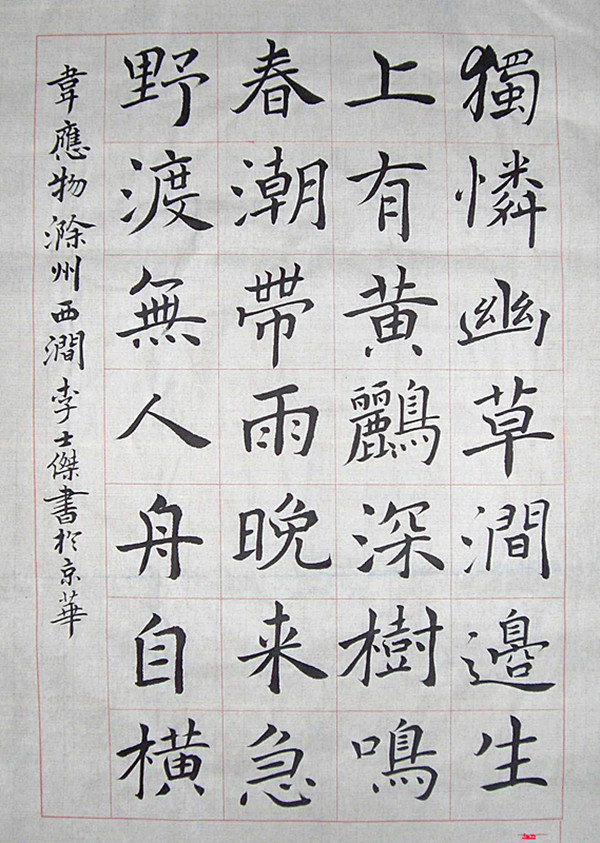 獨憐幽草澗邊生
上有黃鸝深樹鳴
春潮帶雨晚来急
野渡無人舟自橫
韋應物滁州西澗李士傑書於京華